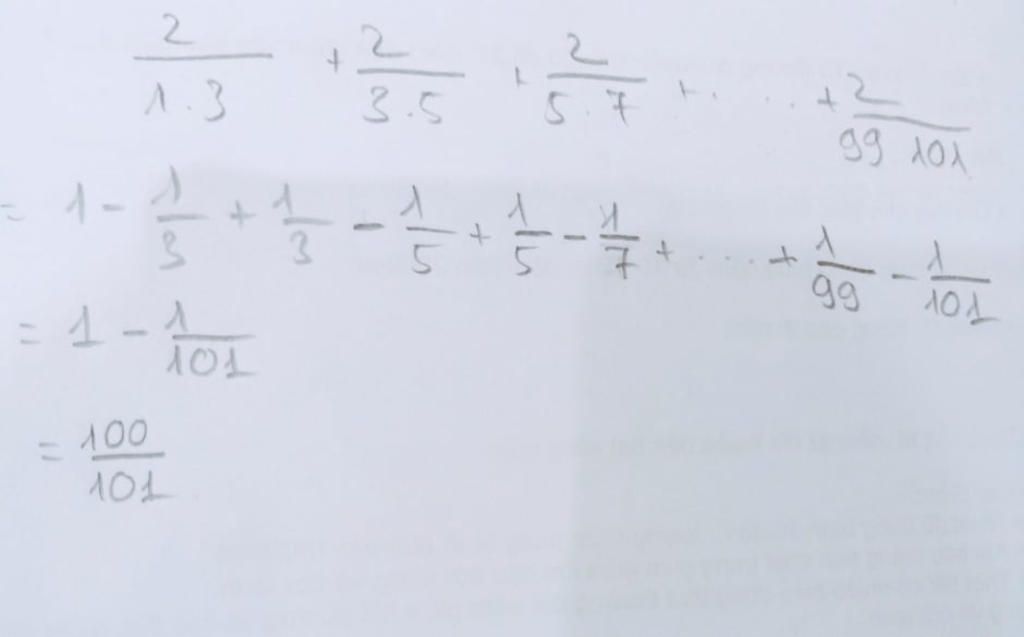 2/1.3 + 2/3.5 + 2/5.7 + .... + 2/99 101
= 1 - 1/3 + 1/3 - 1/5 + 1/5 - 1/7 + .... + 1/99 - 1/101
= 1 - 1/101
= 100/101